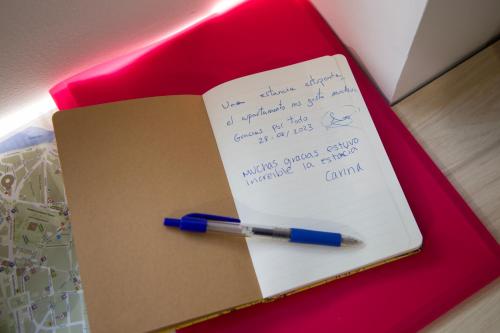 Una estancia estupenda,
el apartamento me gustó mucho
Gracias por todo
28-08/2023
Muchas gracias estuvo
increible la estancia
Carina